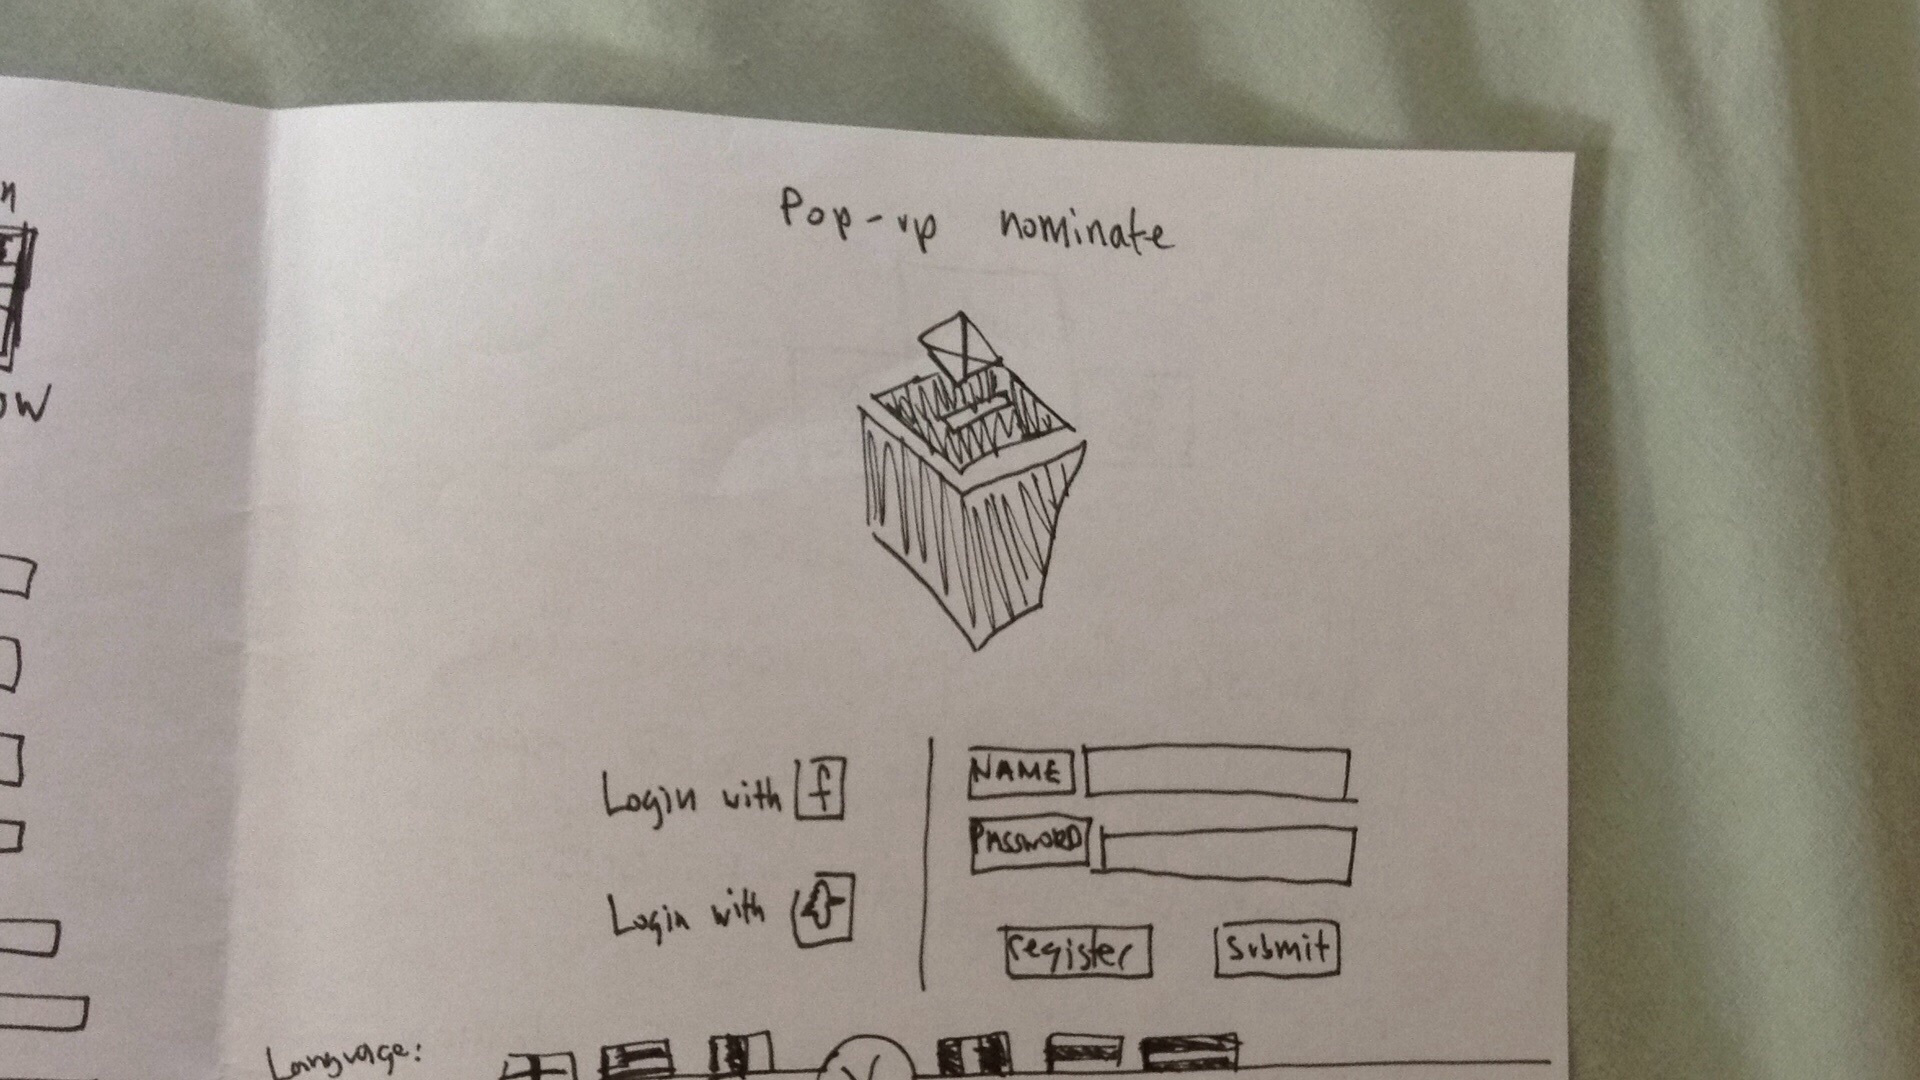 Pop-up nominate
Login with f
Login with
NAME
PASSWORD
register
Submit
Language: